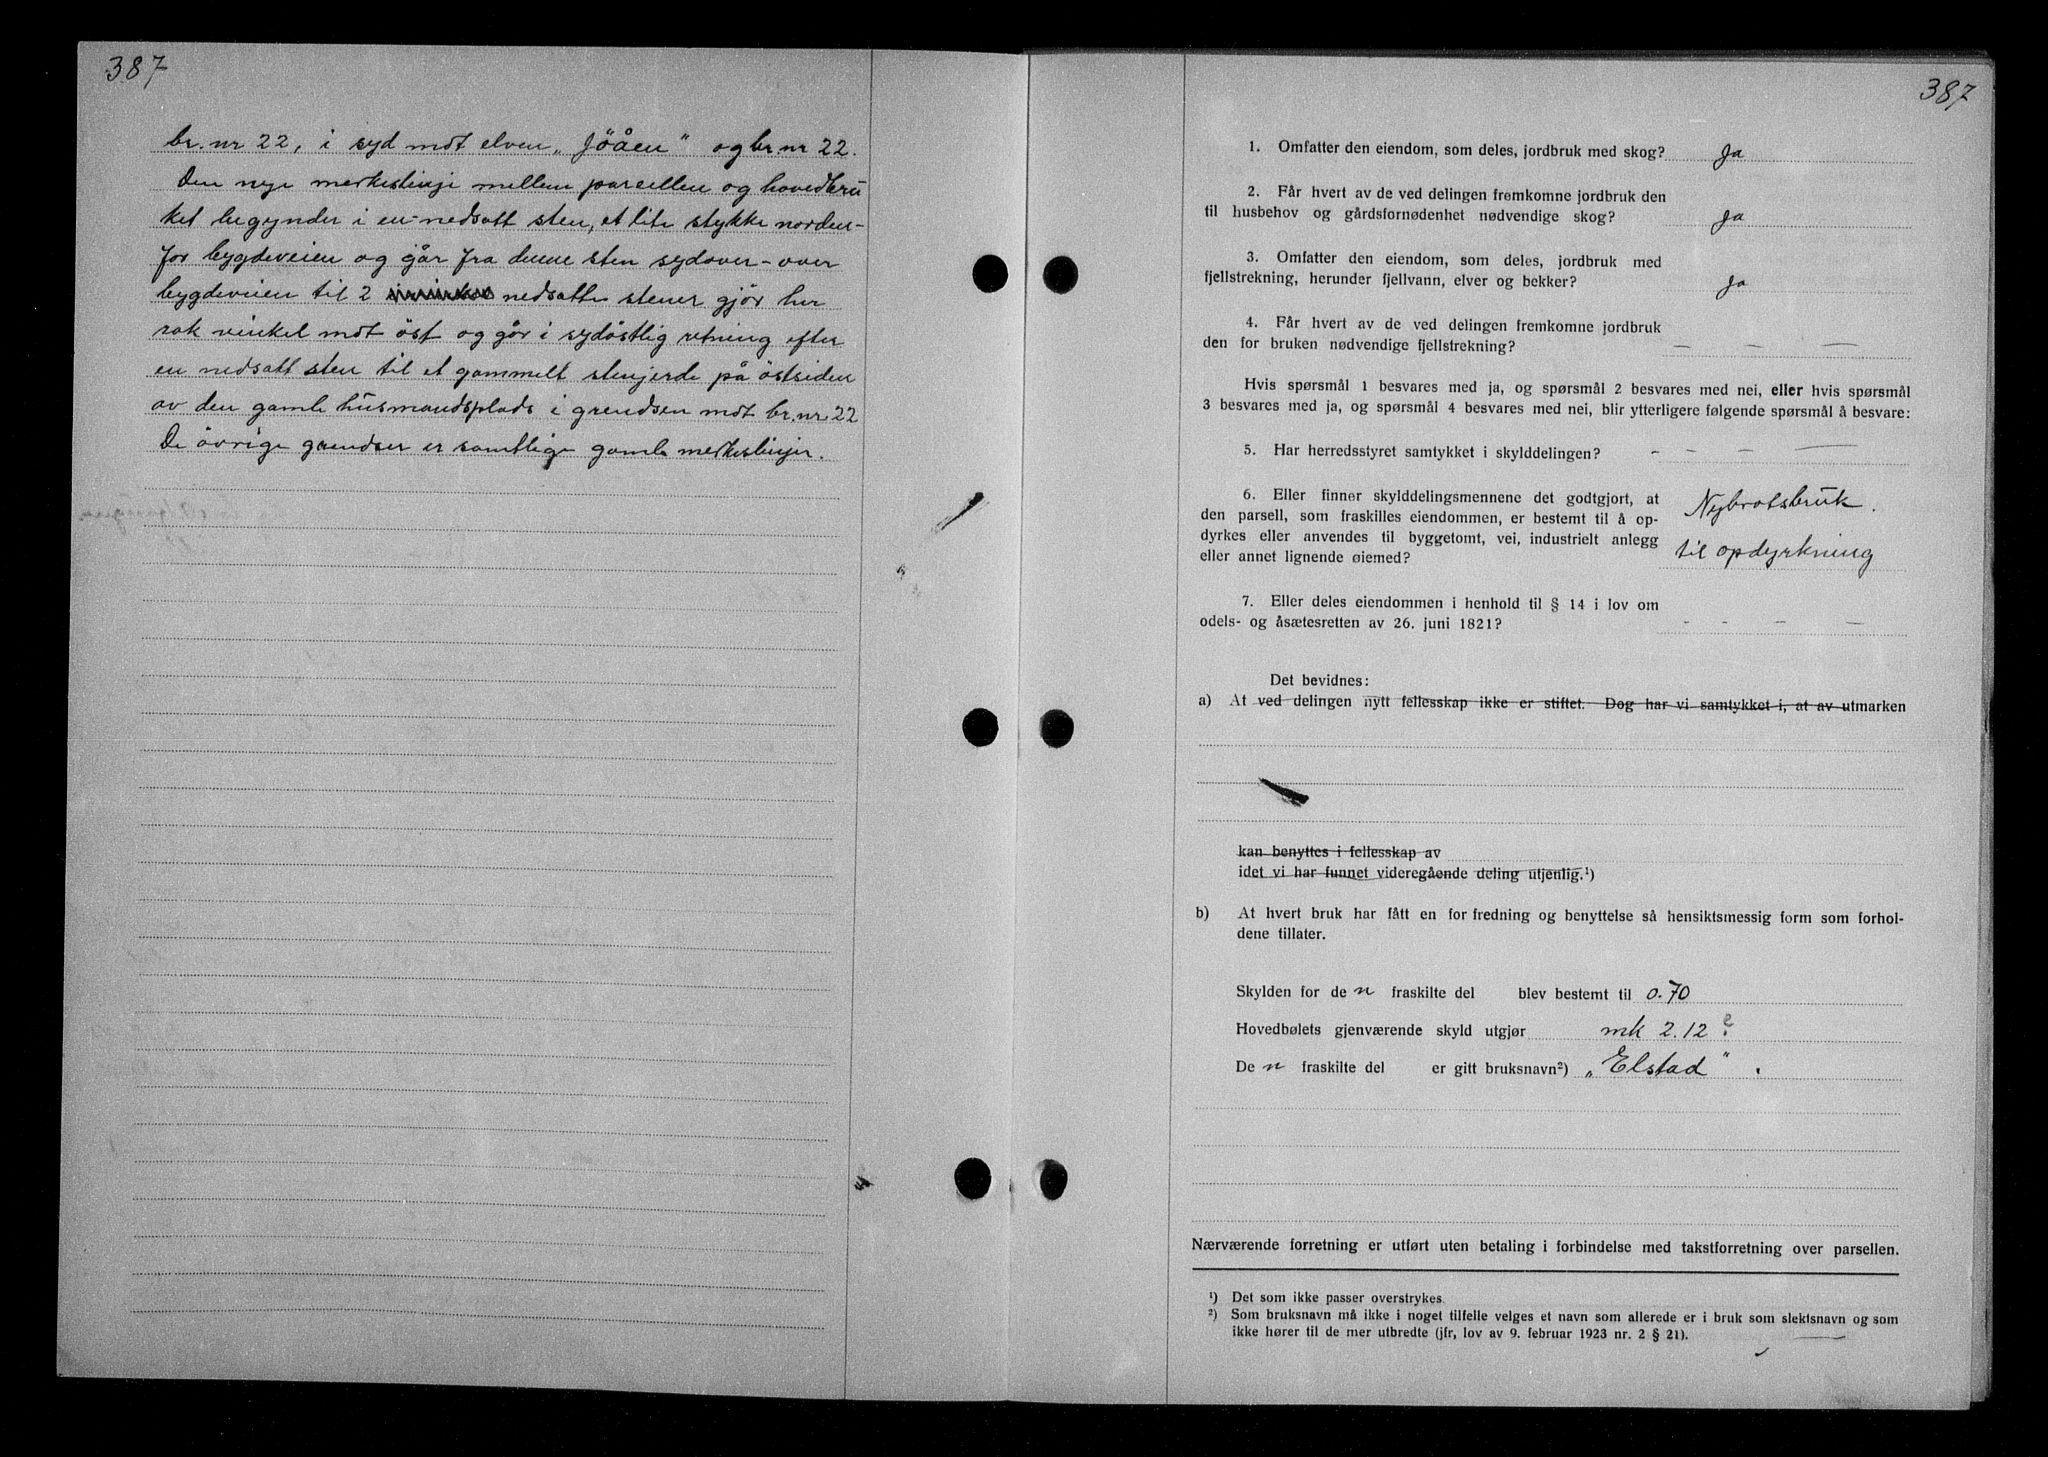 387
br. nr 22, i syd mot elven „Jöåen" og br. nr 22.
Den nye merkeslinje mellem parcellen og hovedbru
ket begynder i en nedsatt sten, et lite stykke norden-
for bygdeveien og går fra denne sten sydover - over
bygdeveien til 2 nedsatte stener gjör her
ret vinkel mot öst og går i sydöstlig retning efter
en nedsatt sten til et gammelt stenjerde på östsiden
av den gamle husmandsplads i grendsen mot br. nr 22
De övrige grendser er samtlige gamle merkeslinjer.
387
1. Omfatter den eiendom, som deles, jordbruk med skog? Ja
2. Får hvert av de ved delingen fremkomne jordbruk den
til husbehov og gårdsfornødenhet nødvendige skog? Ja
3. Omfatter den eiendom, som deles, jordbruk med
fjellstrekning, herunder fjellvann, elver og bekker? Ja
4. Får hvert av de ved delingen fremkomne jordbruk
den for bruken nødvendige fjellstrekning? — — —
Hvis spørsmål 1 besvares med ja, og spørsmål 2 besvares med nei, eller hvis spørsmål
3 besvares med ja, og spørsmål 4 besvares med nei, blir ytterligere følgende spørsmål å besvare:
5. Har herredsstyret samtykket i skylddelingen? - - - —
6. Eller finner skylddelingsmennene det godtgjort, at
den parsell, som fraskilles eiendommen, er bestemt til å op-
dyrkes eller anvendes til byggetomt, vei, industrielt anlegg
eller annet lignende øiemed?
Nybrotsbruk.
til opdyrkning
7. Eller deles eiendommen i henhold til § 14 i lov om
odels- og åsætesretten av 26. juni 1821? - - - -
Det bevidnes:
a) At ved delingen nytt fellesskap ikke er stiftet. Dog har vi samtykket i, at av utmarken
kan benyttes i fellesskap av
idet vi har funnet videregående deling utjenlig.¹)
b) At hvert bruk har fått en for fredning og benyttelse så hensiktsmessig form som forhol-
dene tillater.
Skylden for de n fraskilte del blev bestemt til 0.70
Hovedbølets gjenværende skyld utgjør mk 2.12
De n fraskilte del er gitt bruksnavn²) „Elstad".
Nærværende forretning er utført uten betaling i forbindelse med takstforretning over parsellen.
¹) Det som ikke passer overstrykes.
²) Som bruksnavn må ikke i noget tilfelle velges et navn som allerede er i bruk som slektsnavn og som
ikke hører til de mer utbredte (jfr, lov av 9. februar 1923 nr. 2 § 21).